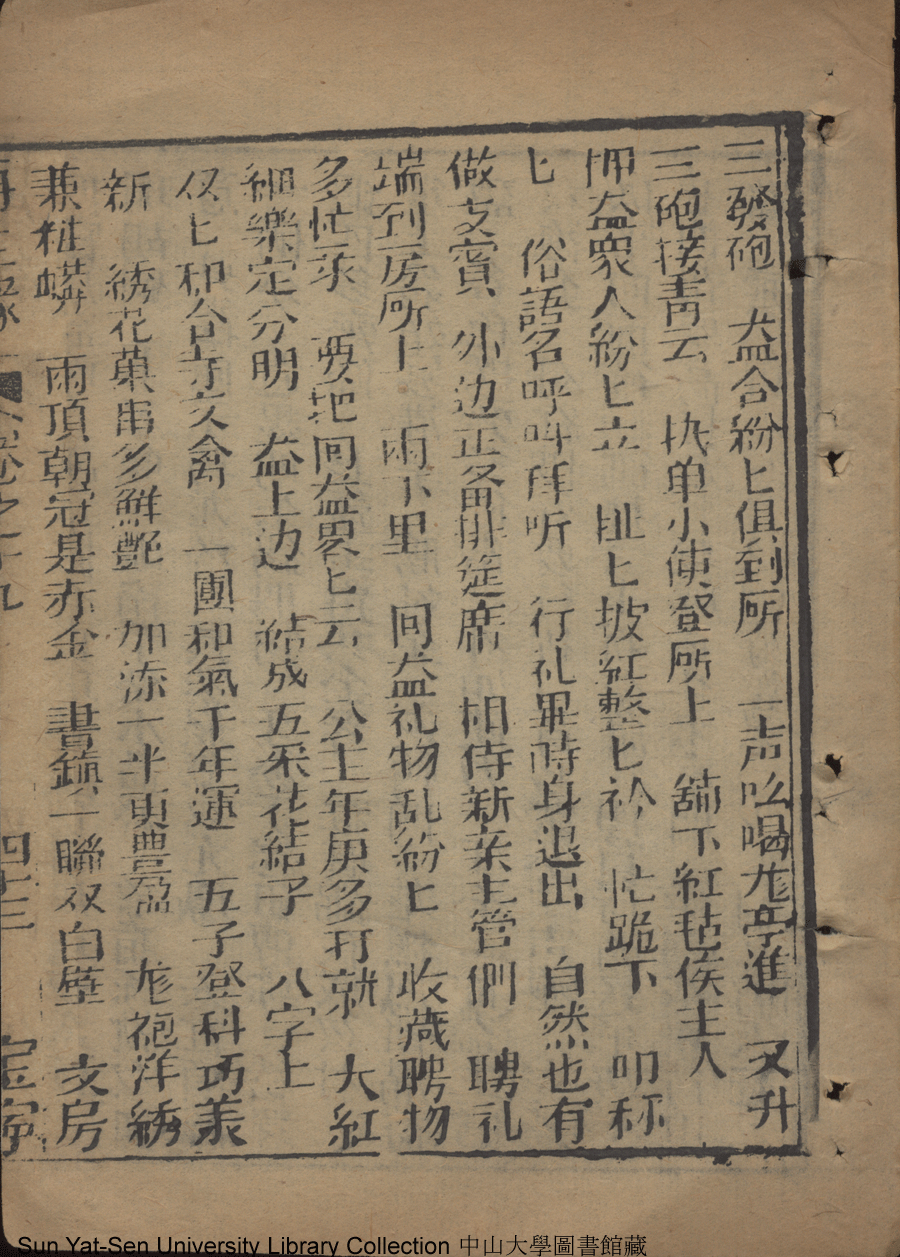 三發砲　盆合紛匕俱到所　一声吆喝尨亭進　又升
三砲接青云　执单小使登所上　舖下紅毡俟主人
押盆衆人紛匕立　扯匕披紅整匕衿　忙跪下　叩称
匕　俗語名呼叫拜听　行礼畢時身退出　自然也有
做支賓　外边正备排筵席　相待新亲主管們　聘礼
端到房所上　兩下里　同盆礼物乱紛匕　收藏聘物
多忙来　要把回盆畧匕云　公主年庚多打就　大紅
細樂定分明　盆上边　結成五采花结子　八字上
仅匕和合 文禽　一團和氣千年運　五子登科巧羕
新　綉花菓串多鮮艷　加添一半更豊盈　尨袍洋綉
兼粧蟒　兩頂朝冠是赤金　書鎮一聯双白璧　文房
卷之十九　四十三　宝宁
Sun Yat-Sen University Library Collection 中山大學圖書館藏